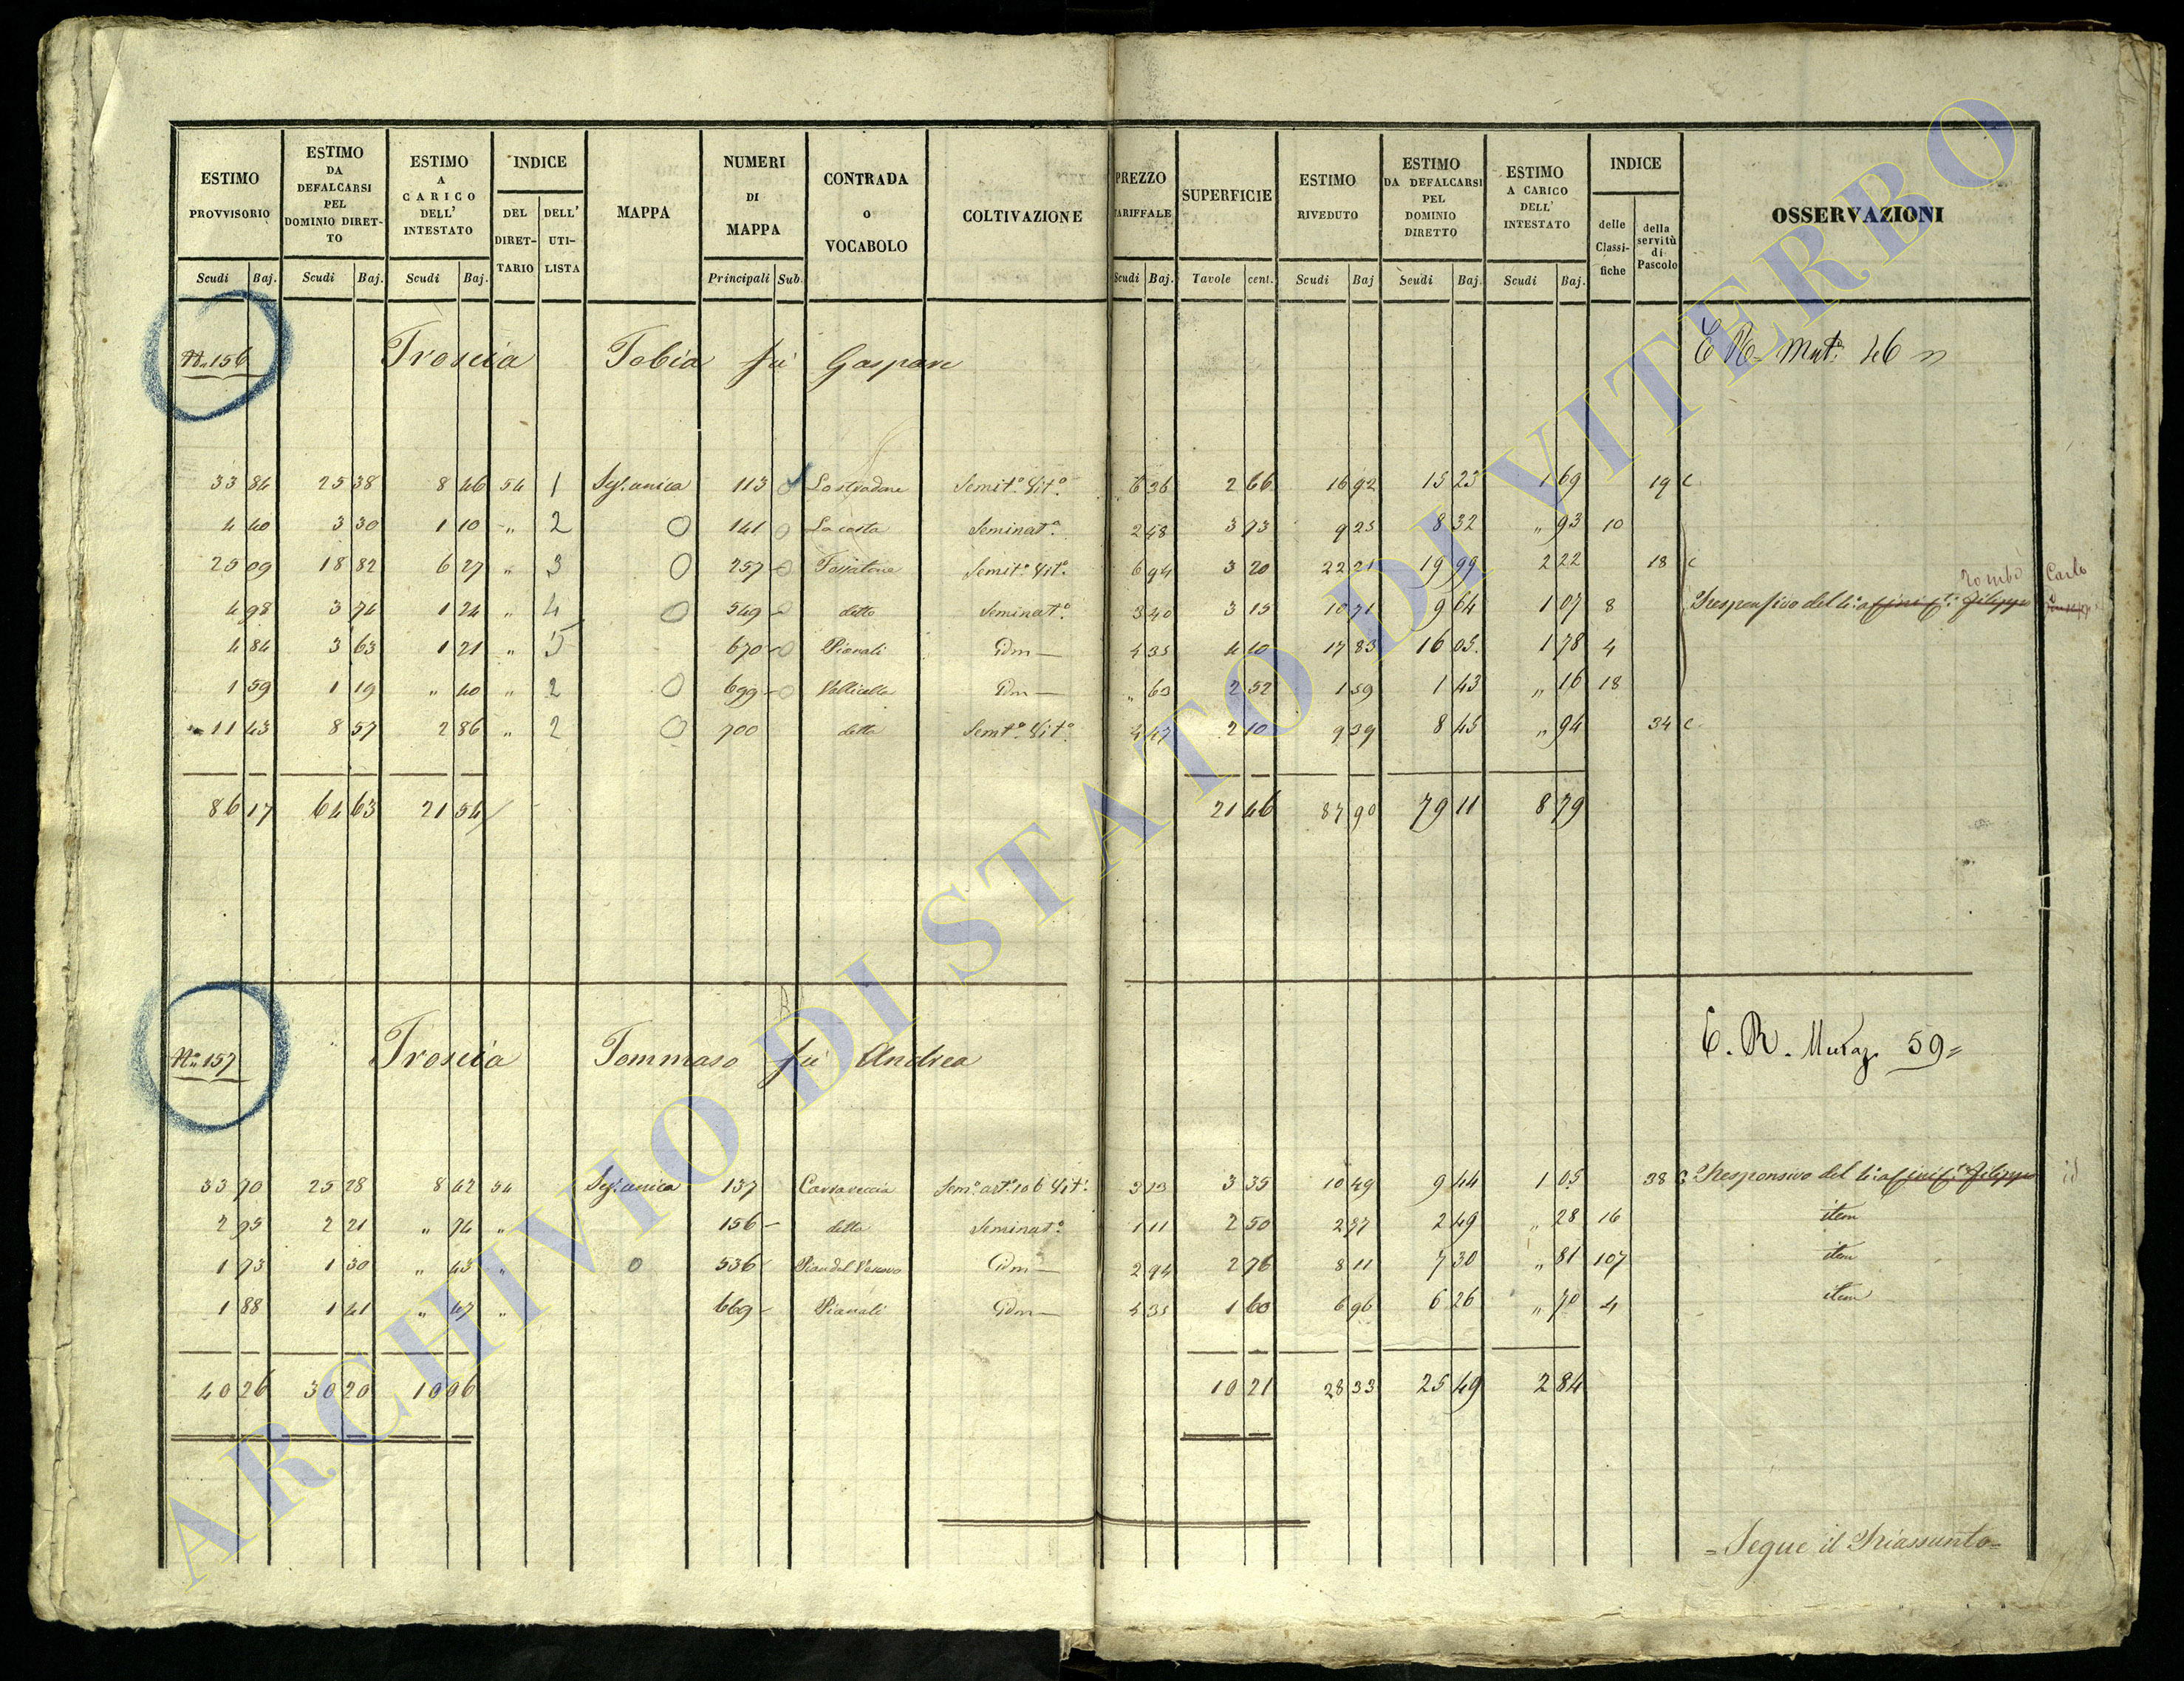 ESTIMO PROVVISORIO Scudi Baj.
ESTIMO DA DEFALCARSI PEL DOMINIO DIRET-TO Scudi Baj.
ESTIMO A CARICO DELL' INTESTATO Scudi Baj.
INDICE DEL DIRET-TARIO DELL' UTI-LISTA
MAPPA
NUMERI DI MAPPA Principali Sub.
CONTRADA O VOCABOLO
COLTIVAZIONE
PREZZO TARIFFALE Scudi Baj.
SUPERFICIE Tavole cent.
ESTIMO RIVEDUTO Scudi Baj
ESTIMO DA DEFALCARSI PEL DOMINIO DIRETTO Scudi Baj.
ESTIMO A CARICO DELL' INTESTATO Scudi Baj.
INDICE delle Classi-fiche della servitù di Pascolo
OSSERVAZIONI
No 156 Troscia Tobia fu Gaspare Mut. 46
33 84 25 38 8 46 54 1 Sez. unica 113 Semit.o Vit.o 6 36 2 66 16 92 15 23 1 69 19 c.
4 40 3 30 1 10 " 2 141 La costa Seminat.o 2 48 3 73 9 25 8 32 " 93 10
25 09 18 82 6 27 " 3 257 Semit.o Vit.o 6 94 3 20 22 21 19 99 2 22 18 c
4 98 3 74 1 24 " 4 549 detto Seminat.o 3 40 3 15 10 71 9 64 1 07 8 Responsivo del Carlo
4 84 3 63 1 21 " 5 670 Pianali Idm 4 35 4 10 17 83 16 05 1 78 4
1 59 1 19 " 40 " 2 699 Vallicella Idm " 63 2 52 1 59 1 43 " 16 18
11 43 8 57 2 86 " 2 700 detta Semt.o Vit.o 4 47 2 10 9 39 8 45 " 94 34 c.
86 17 64 63 21 54 21 46 87 90 79 11 8 79
No 157 Troscia Tommaso fu Andrea E. R. 59=
33 70 25 28 8 42 54 Sez. unica 137 3 13 3 35 10 49 9 44 1 05 38 c Responsivo del id
2 95 2 21 " 74 " 156 detta Seminat.o 1 11 2 50 2 77 2 49 " 28 16 item
1 73 1 30 " 43 " 536 Pian del Vescovo Idm 2 94 2 76 8 11 7 30 " 81 107 item
1 88 1 41 " 47 " 669 Pianali Idm 4 35 1 60 6 96 6 26 " 70 4 item
40 26 30 20 10 06 10 21 28 33 25 49 2 84
=Segue il Riassunto=
ARCHIVIO DI STATO DI VITERBO